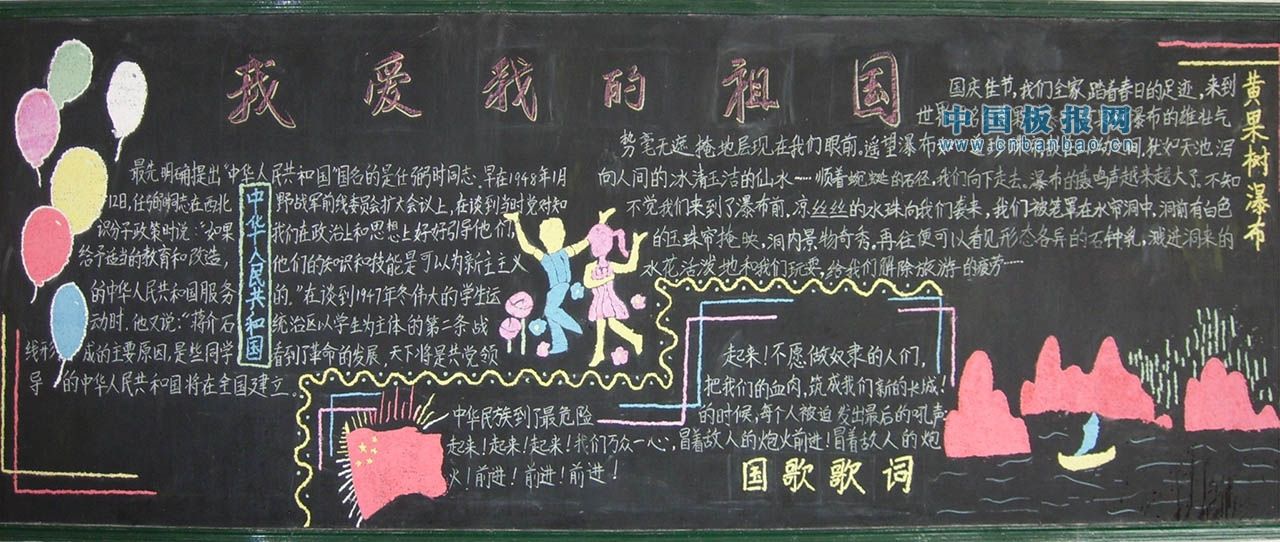 我爱我的祖国
最先明确提出“中华人民共和国”国名的是任弼时同志。早在1948年1月
12日,任弼时同志在西北野战军前线委员会扩大会议上,在谈到当时党对知
识分子政策时说:“如果我们在政治上和思想上好好引导他们,
给予适当的教育和改造,他们的知识和技能是可以为新主主义
的中华人民共和国服务的。”在谈到1947年冬伟大的学生运
动时,他又说:“蒋介石统治区以学生为主体的第二条战
线形成的主要原因,是些同学看到了革命的发展,天下将是共党领
导的中华人民共和国将在全国建立。
中华人民共和国
黄果树瀑布
国庆佳节,我们全家踏着春日的足迹,来到
世界 瀑布的雄壮气
势毫无遮掩地层现在我们眼前。遥望瀑布 间,犹如天池,泻
向人间的冰清玉洁的仙水……顺着蜿蜒的石径,我们向下走去。瀑布的轰鸣声越来越大了。不知
不觉我们来到了瀑布前,凉丝丝的水珠向我们袭来,我们被笼罩在水帘洞中,洞前有白色
的玉珠帘掩映,洞内景物奇秀。再往便可以看见形态各异的石钟乳,溅进洞来的
水花活泼地和我们玩耍,给我们解除旅游的疲劳……
起来!不愿做奴隶的人们,
把我们的血肉,筑成我们新的长城!
中华民族到了最危险的时候,每个人被迫发出最后的吼声
起来!起来!起来!我们万众一心,冒着敌人的炮火前进!冒着敌人的炮
火!前进!前进!前进!
国歌歌词
中国板报网
www.cnbanbao.cn